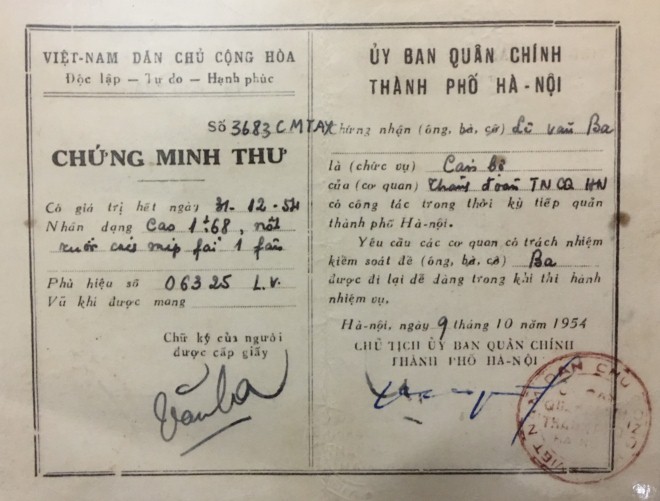 VIỆT-NAM DÂN CHỦ CỘNG HÒA
Độc lập — Tự do — Hạnh phúc
Số 3683 CMTAX
CHỨNG MINH THƯ
Có giá trị hết ngày 31-12-54
Nhân dạng Cao 1t68, nốt
ruồi cách mép fải 1 fân
Phù hiệu số 06325 L.V.
Vũ khí được mang
Chữ ký của người
được cấp giấy
Văn Ba
ỦY BAN QUÂN CHÍNH
THÀNH PHỐ HÀ-NỘI
Chứng nhận (ông, bà, cô) Lê Văn Ba
là (chức vụ) Cán bộ
của (cơ quan) đoàn TNCQ HN
có công tác trong thời kỳ tiếp quản
thành phố Hà-nội.
Yêu cầu các cơ quan có trách nhiệm
kiểm soát để (ông, bà, cô) Ba
được đi lại dễ dàng trong khi thi hành
nhiệm vụ.
Hà-nội, ngày 9 tháng 10 năm 1954
CHỦ TỊCH ỦY BAN QUÂN CHÍNH
THÀNH PHỐ HÀ-NỘI